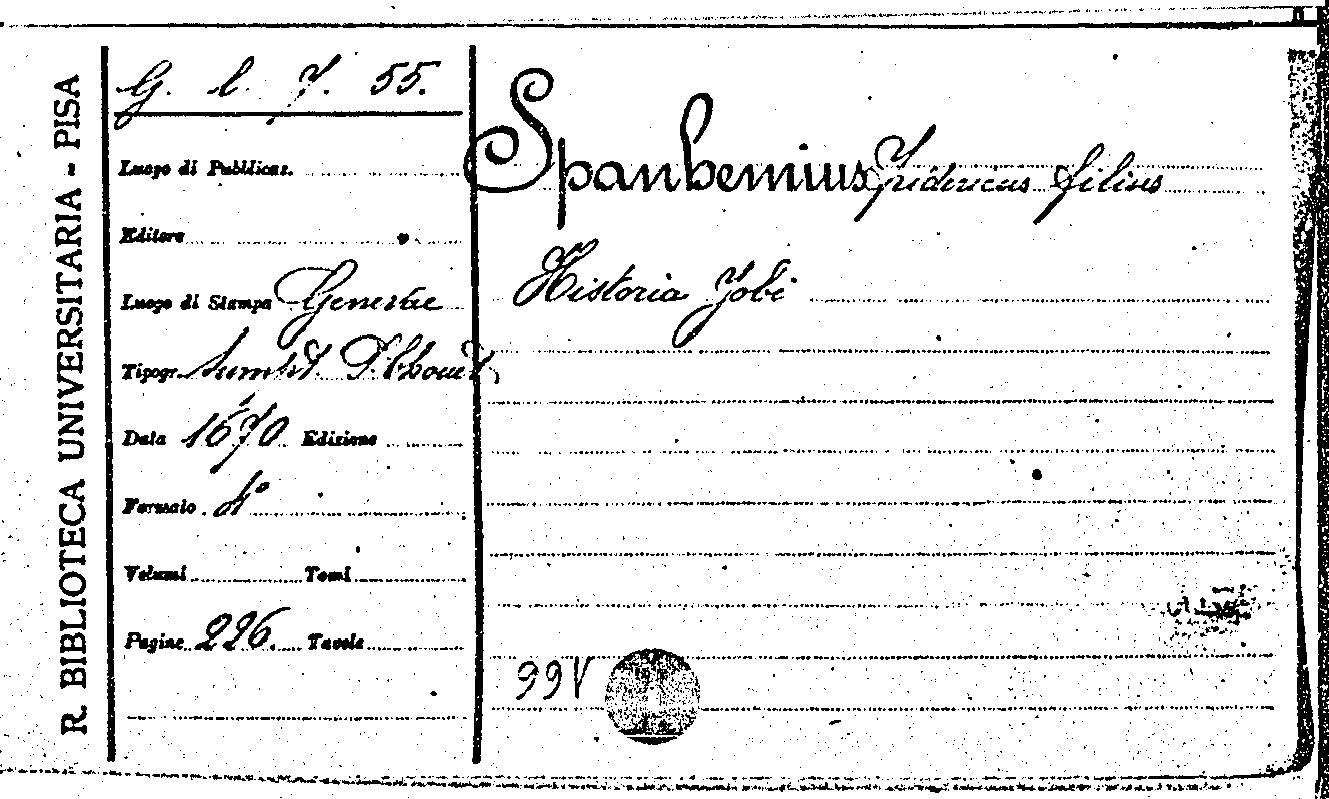 R. BIBLIOTECA UNIVERSITARIA - PISA
G. l. 7. 55.
Luogo di Pubblicaz.
Editore
Luogo di Stampa Genevae
Tipogr. Sumpt. P. Chouët
Data 1670 Edizione
Formato 4°
Volumi Tomi
Pagine 226. Tavole
Spanhemius Fridericus filius
Historia Jobi
99V